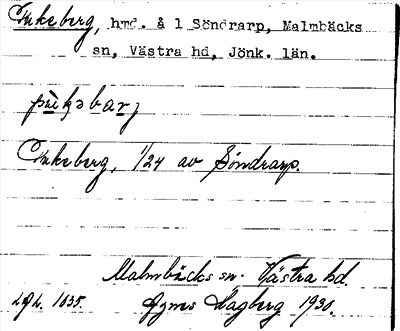 Pukeberg, hmd. å 1 Söndrarp, Malmbäcks
sn, Västra hd, Jönk. län.
Pukeberg, 1/24 av Söndrarp.
Malmbäcks sn. Västra hd.
1635. Agnes Hagberg 1930.